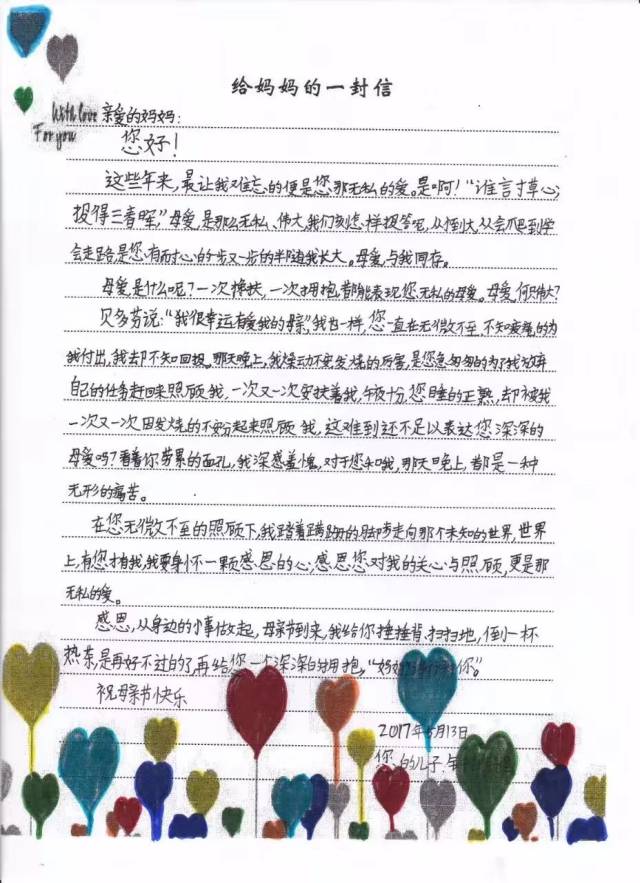 给妈妈的一封信
With love 亲爱的妈妈:
For you 您好!
这些年来,最让我难忘的便是您那无私的爱。是啊!“谁言寸草心,
报得三春晖,”母爱,是那么无私、伟大,我们该怎样报答呢,从小到大,从会爬到学
会走路,是您,有耐心的一步又一步的伴随我长大。母爱,与我同存。
母爱是什么呢?一次搀扶,一次拥抱都能表现您无私的母爱。母爱,何其伟大?
贝多芬说:“我很幸运有爱我的母亲”,我也一样,您一直在无微不至,不知疲倦的为
我付出,我却不知回报。那天晚上,我燥动不安,发烧的厉害,是您急匆匆的为了我放弃
自己的任务赶回来照顾我,一次又一次安扶着我,午夜十分,您睡的正熟,却被我
一次又一次因发烧的不安分起来照顾我,这难到还不足以表达您深深的
母爱吗?看着你劳累的面孔,我深感羞愧,对于您和我,那天晚上,都是一种
无形的痛苦。
在您无微不至的照顾下,我踏着蹒跚的脚步走向那个未知的世界,世界
上,有您才有我,我要身怀一颗感恩的心,感恩您对我的关心与照顾,更是那
无私的爱。
感恩,从身边的小事做起,母亲节到来,我给你捶捶背,扫扫地,倒一杯
热东,是再好不过的了,再给您一个深深的拥抱,“妈妈 你”。
祝母亲节快乐
2017年5月13日
您的儿子: